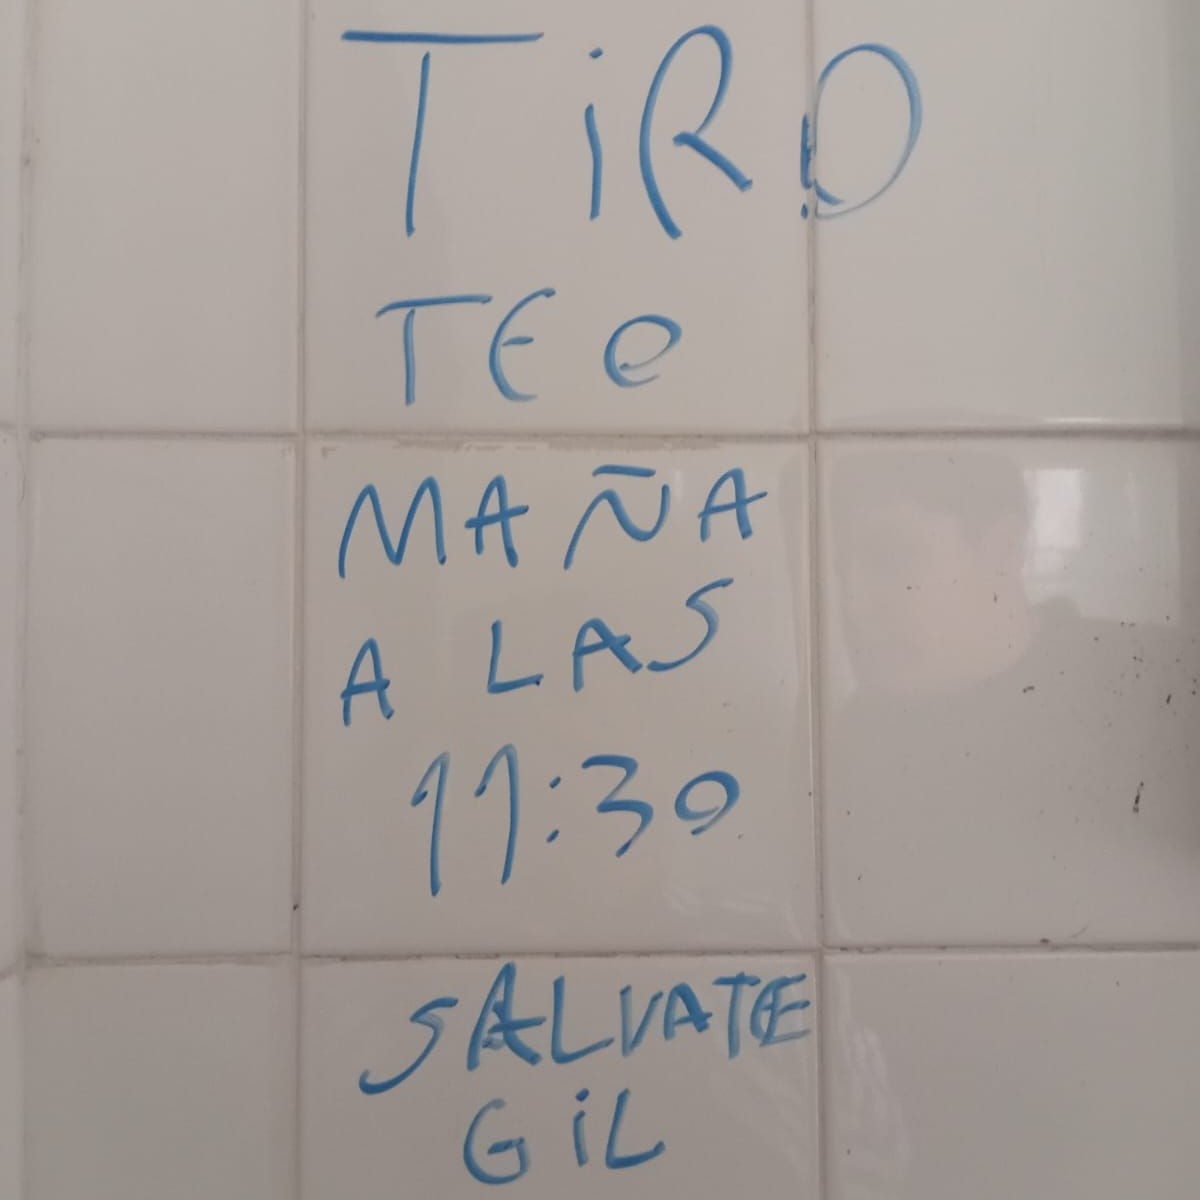 TiRO
TEe
MAÑA
A LAS
11:30
SALVATE
GiL